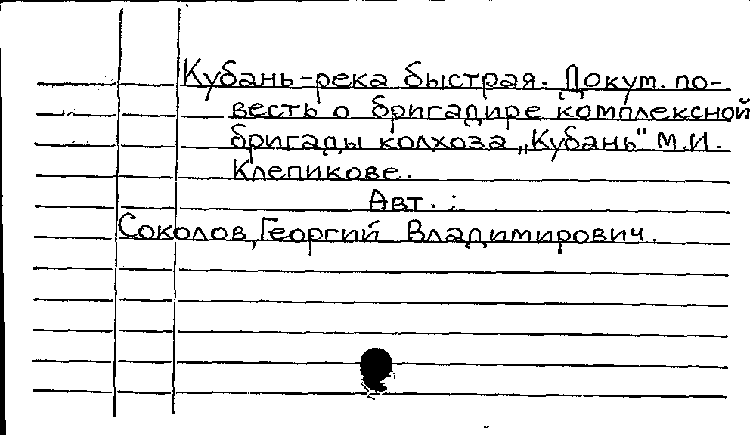 Кубань-река быстрая. Докут. по-
весть о бригадире комплексной
бригады колхоза „Кубань" М.И.
Клепикове.
Авт.:
Соколов, Георгий Владимирович.